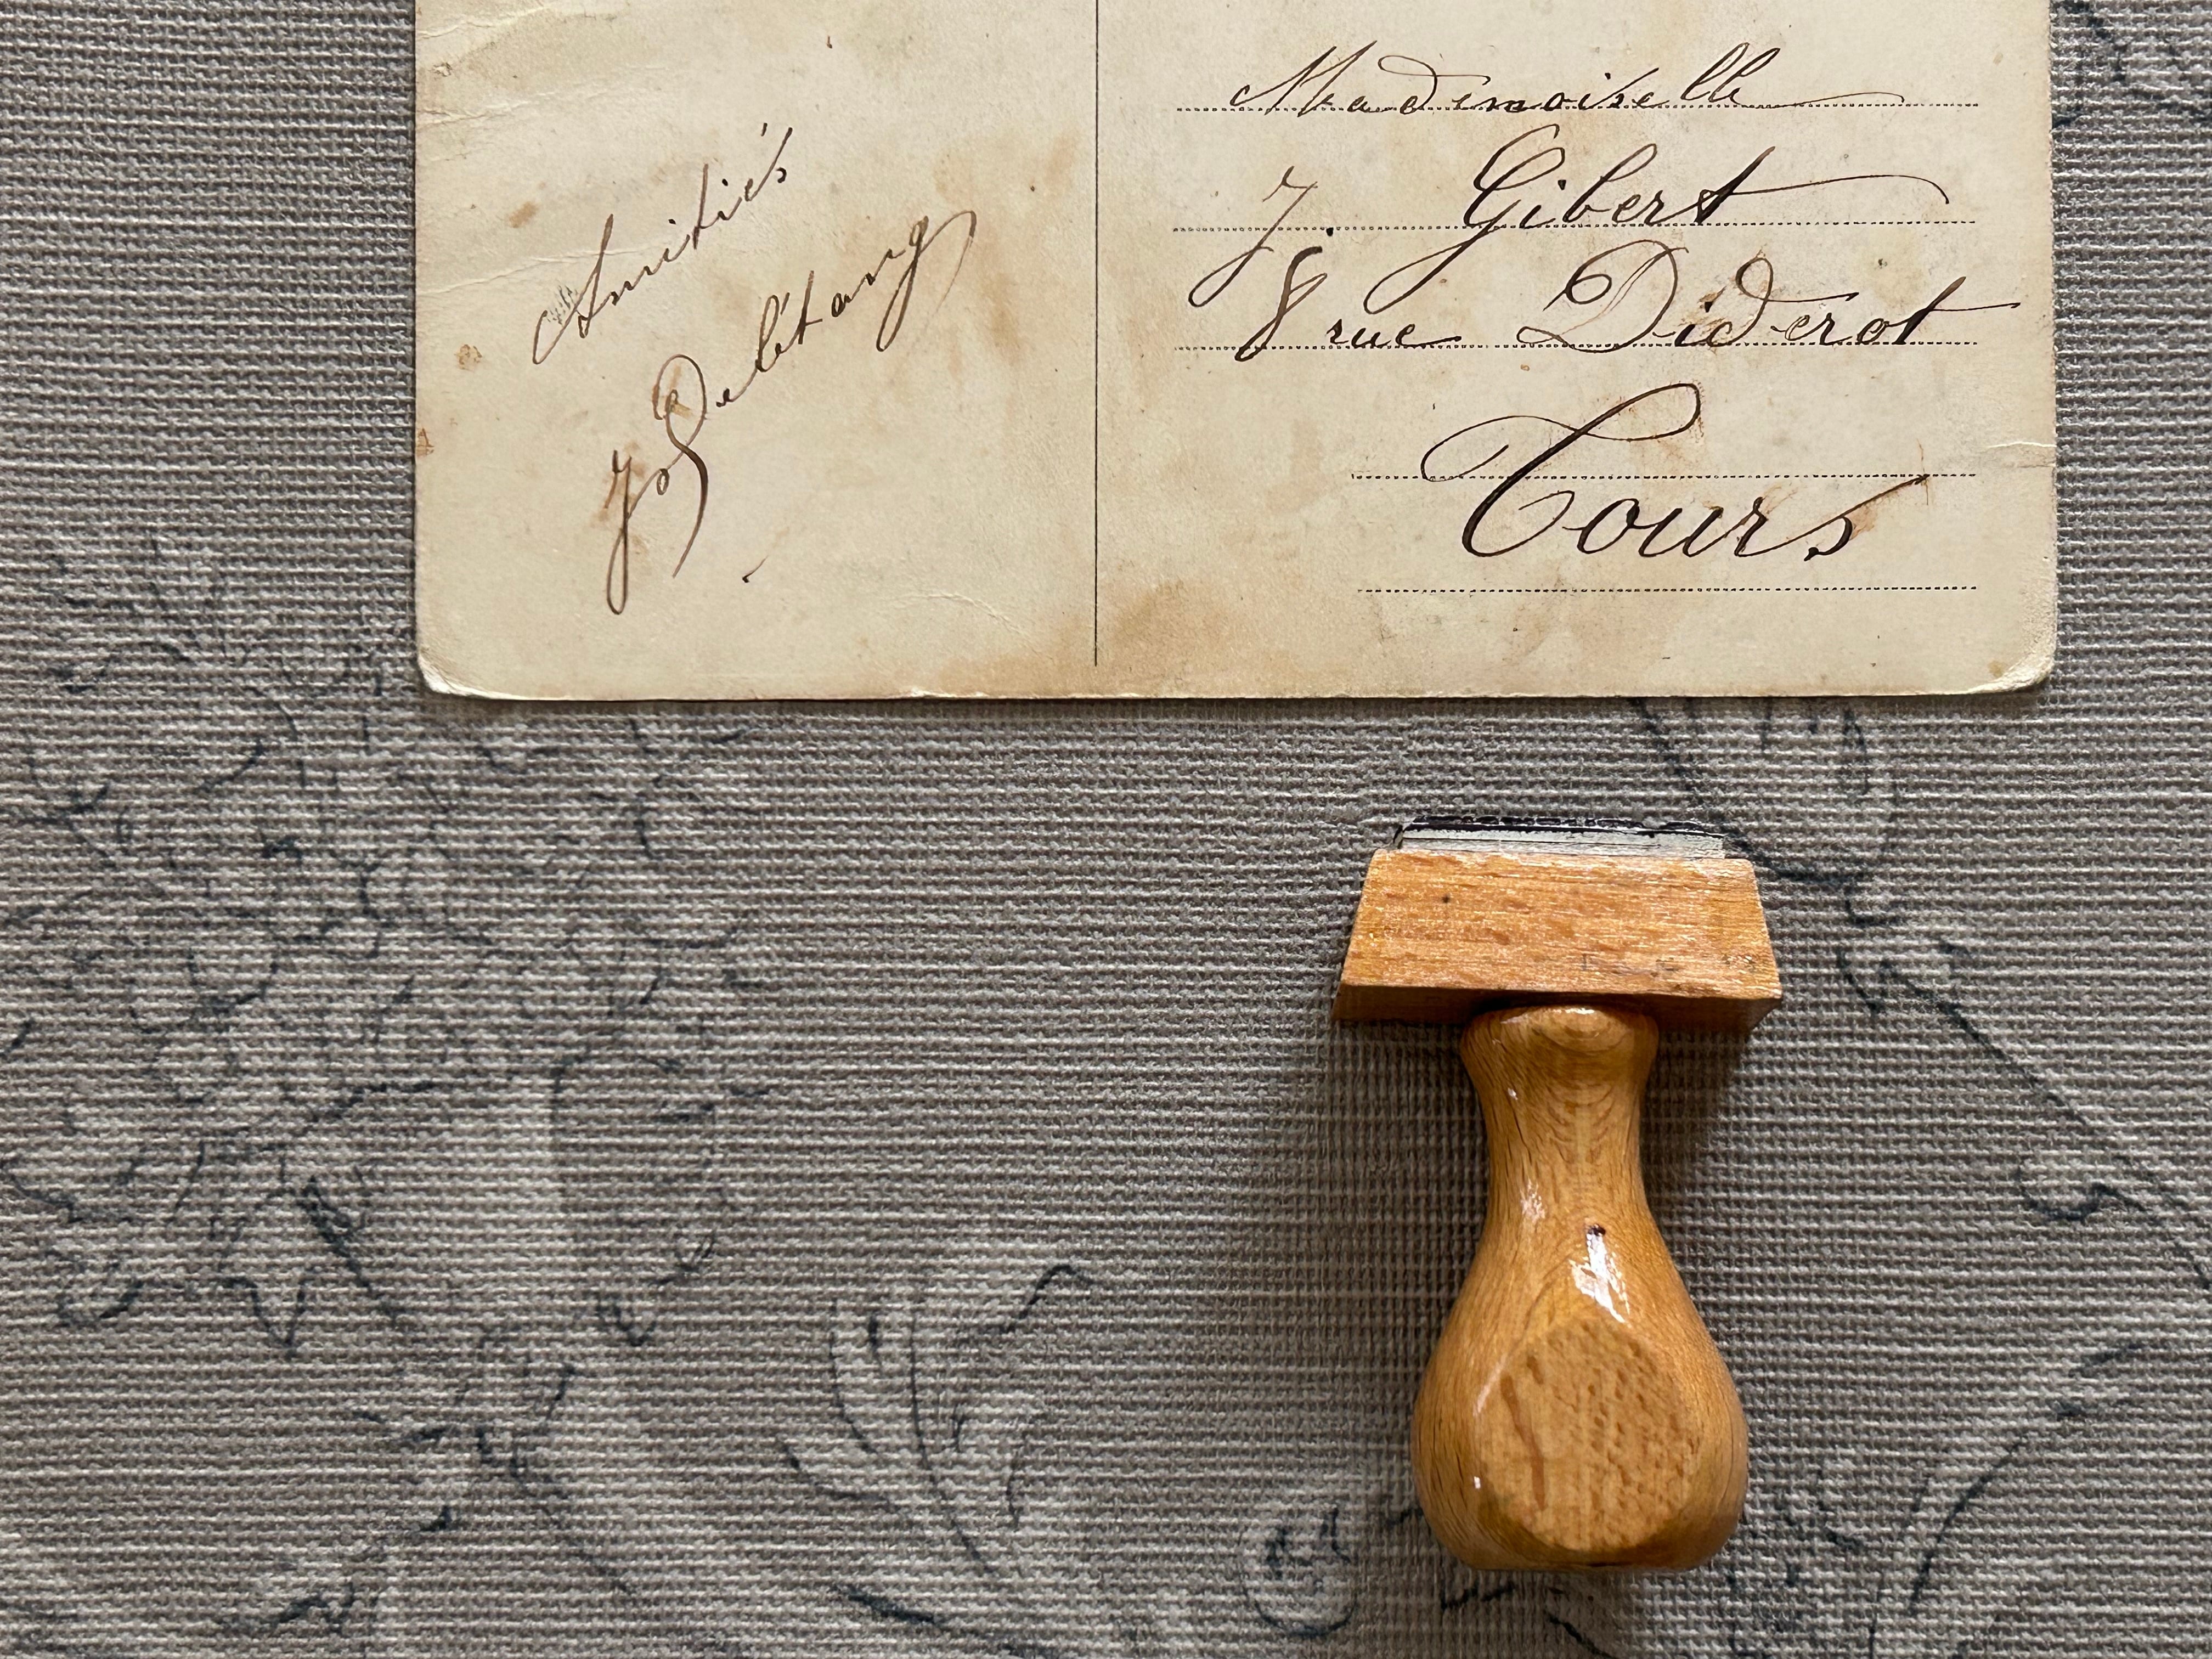 Amitiés
J Deletang
Mademoiselle
J. Gibert
8 rue Diderot
Tours